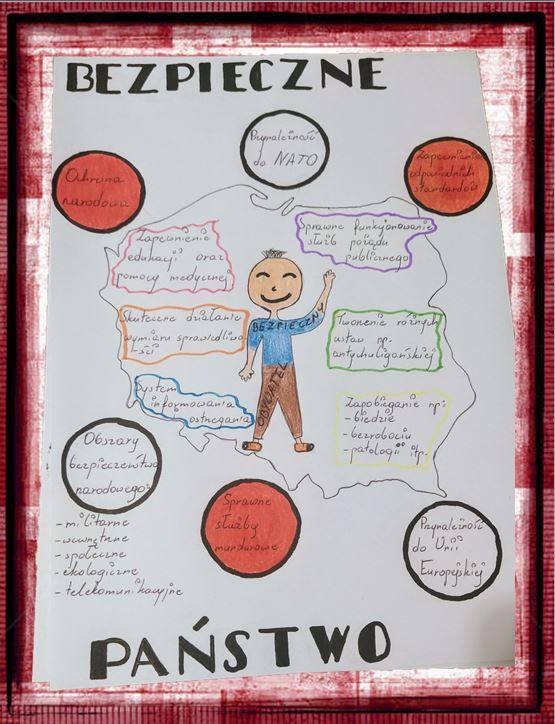 BEZPIECZNE
Przynależność
do NATO
Ochrona
narodowa
Zapewnienie
odpowiednich
standardów
Zapewnienie
edukacji oraz
pomocy medycznej
Sprawne funkcjonowanie
służb porządku
publicznego
Skuteczne działanie
wymiaru sprawiedliwo
-ści
BEZPIECZNY
OBYWATEL
Tworzenie różnych
ustaw np.
antychuligańskiej
System
informowania
ostrzegania
Zapobieganie np:
- biedzie
- bezrobociu
- patologii itp.
Obszary
bezpieczeństwa
narodowego:
- militarne
- wewnętrzne
- społeczne
- ekologiczne
- telekomunikacyjne
Sprawne
służby
mundurowe
Przynależność
do Unii
Europejskiej
PAŃSTWO